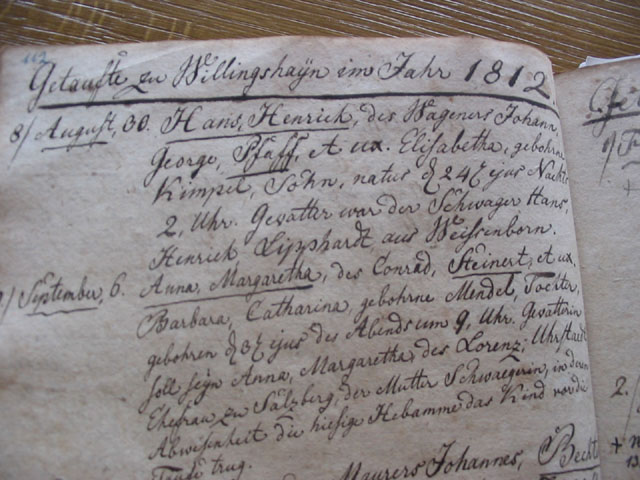 112
Getaufte zu Willingshayn im Jahr 1812.
8/ August, 30. Hans, Henrich, des Wageners Johann,
George, Pfaff, et ux. Elisabetha, gebohrne
Kimpel, Sohn, natus d 24t ejus Nachts
2, Uhr. Gevatter war der Schwager Hans,
Henrich Lipphardt aus Weissenborn.
9/ September, 6. Anna, Margaretha, des Conrad, Steinert, et ux.
Barbara, Catharina gebohrne Mendel, Tochter,
gebohren d 3t ejus des Abends um 9, Uhr. Gevatterin
soll seyn Anna, Margaretha, des Lorenz, Uhrstadt
Ehefrau zu Salzberg, der Mutter Schwaegerin, in deren
Abwisenheit die hiesige Hebamme das Kind vor die
Taufe trug.
Maurers Johannes, Becht
2.
+